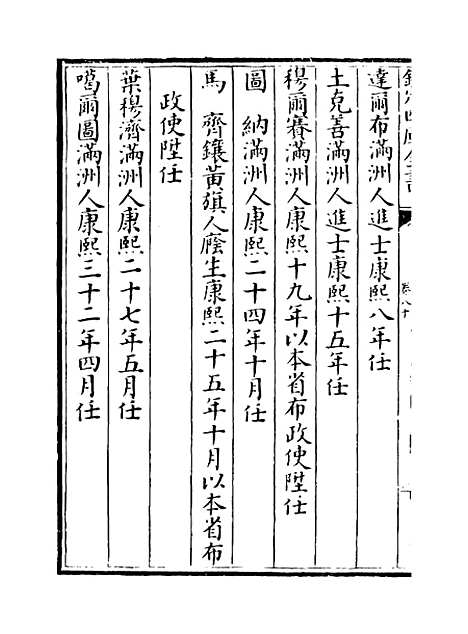 欽定四庫全書
達爾布滿洲人進士康熙八年任
土克善滿洲人進士康熙十五年任
穆爾賽滿洲人康熙十九年以本省布政使陞任
圖　納滿洲人康熙二十四年十月任
馬　齊鑲黃旗人廕生康熙二十五年十月以本省布
政使陞任
葉穆濟滿洲人康熙二十七年五月任
噶爾圖滿洲人康熙三十二年四月任